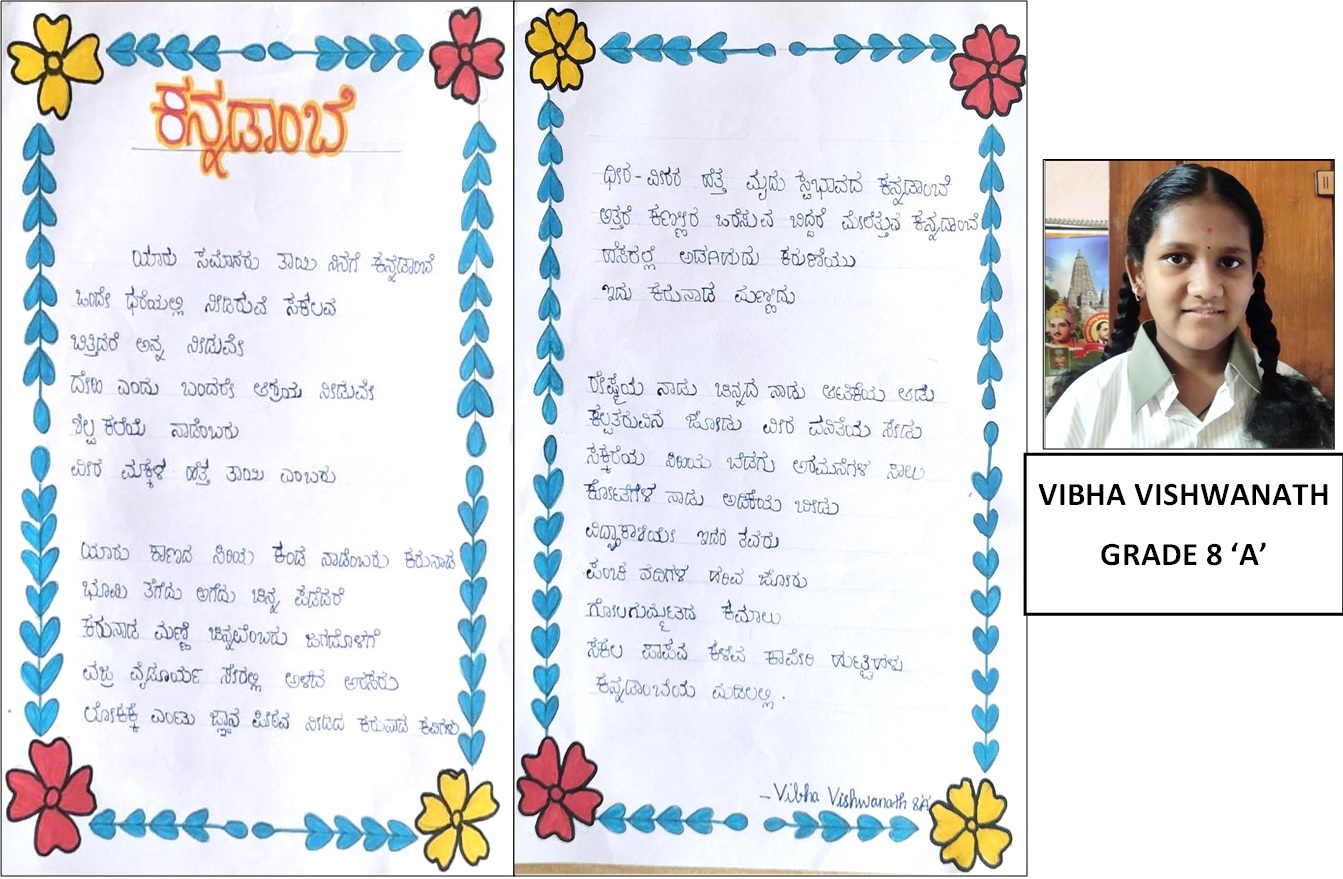 ಕನ್ನಡಾಂಬೆ
ಯಾರು ಸಮಾನರು ತಾಯಿ ನಿನಗೆ ಕನ್ನಡಾಂಬೆ
ಒಂದೇ ಧರೆಯಲ್ಲಿ ನೀಡಿರುವೆ ಸಕಲವ
ಬಿತ್ತಿದರೆ ಅನ್ನ ನೀಡುವೇ
ದೇಹಿ ಎಂದು ಬಂದರೇ ಆಶ್ರಯ ನೀಡುವೇ
ಶಿಲ್ಪ ಕಲೆಯ ನಾಡೆಂಬರು
ವೀರ ಮಕ್ಕಳ ಹೆತ್ತ ತಾಯಿ ಎಂಬರು
ಯಾರು ಕಾಣದ ಸಿರಿಯ ಕಂಡ ನಾಡೆಂಬರು ಕರುನಾಡ
ಭೂಮಿ ತೆಗೆದು ಅಗೆದು ಚಿನ್ನ ಪಡೆದರೆ
ಕರುನಾಡ ಮಣ್ಣೆ ಚಿನ್ನವೆಂಬರು ಜಗದೊಳಗೆ
ವಜ್ರ ವೈಡೂರ್ಯ ಸೇರಲ್ಲಿ ಅಳೆದ ಅರಸರು
ಲೋಕಕ್ಕೆ ಎಂಟು ಜ್ಞಾನ ಪೀಠವ ನೀಡಿದ ಕರುನಾಡ ಕವಿಗಳು
ಧೀರ - ವೀರರ ಹೆತ್ತ ಮೃದು ಸ್ವಭಾವದ ಕನ್ನಡಾಂಬೆ
ಅತ್ತರೆ ಕಣ್ಣೀರ ಒರೆಸುವ ಬಿದ್ದರೆ ಮೇಲೆತ್ತುವ ಕನ್ನಡಾಂಬೆ
ಹೆಸರಲ್ಲೆ ಅಡಗಿಹುದು ಕರುಣೆಯು
ಇದು ಕರುನಾಡ ಮಣ್ಣಿದು
ರೇಷ್ಮೆಯ ನಾಡು ಚಿನ್ನದ ನಾಡು
ಕಲ್ಪತರುವಿನ ಜೋಡು ವೀರ ವನಿತೆಯ
ಸಕ್ಕರೆಯ ಸಿಹಿಯ ಬೆಡಗು ಅರಮನೆಗಳ ಸಾಲು
ಕೋಟೆಗಳ ನಾಡು ಅಡಿಕೆಯ ಬೀಡು
ವಿದ್ಯಾಕಾಶಿಯೇ ಇದರ ತವರು
ಪಂಚ ನದಿಗಳ ಹರಿವ ಜೋರು
ಗೋಲಗುಮ್ಮಟದ ಕಮಾಲು
ಸಕಲ ಪಾಪವ ಕಳೆವ ಕಾವೇರಿ ಹುಟ್ಟಿಹಳು
ಕನ್ನಡಾಂಬೆಯ ಮಡಿಲಲ್ಲಿ .
- Vibha Vishwanath 8'A'
VIBHA VISHWANATH
GRADE 8 ‘A’